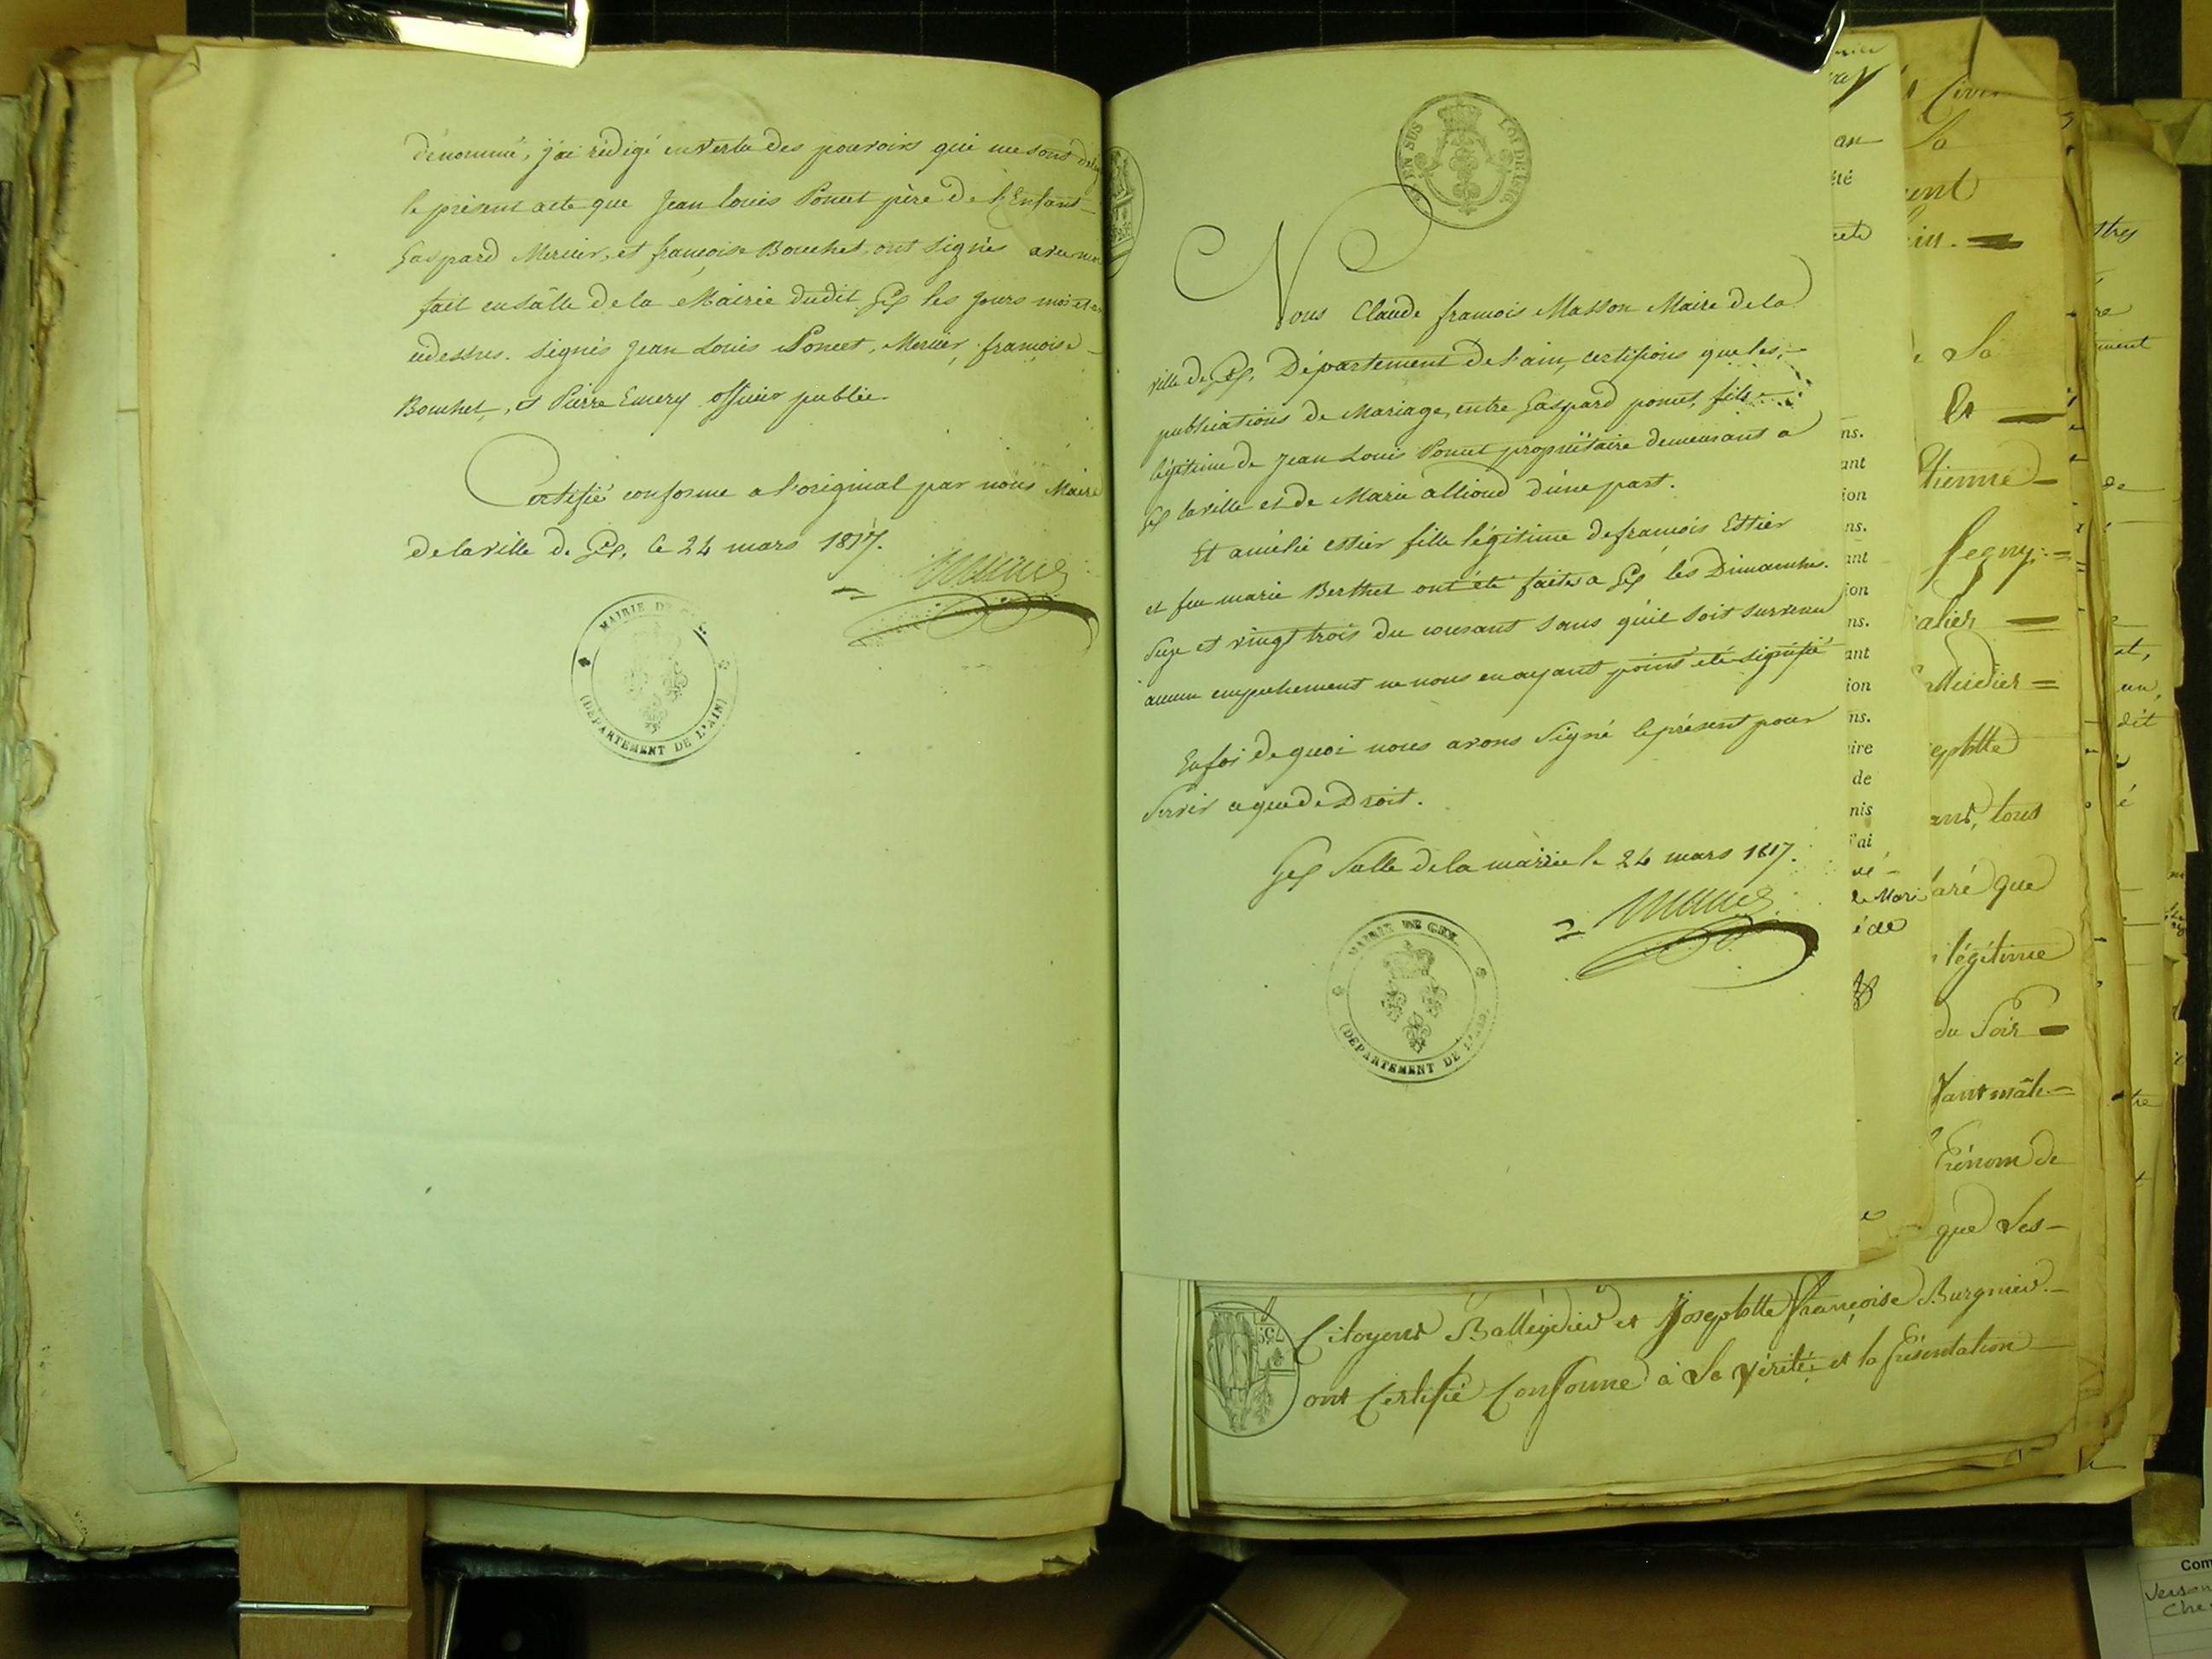 dénommé, j'ai rédigé en vertu des pouvoirs qui me sont
le présent acte que Jean Louis Poncet père de l'Enfant
Gaspard Mercier, et françoise Bouchet, ont signés avec moi
fait en sâlle de la Mairie dudit Gex les jours mois et an
cidessus. signés Jean Louis Poncet, Mercier, françoise
Bouchet, et Pierre Emery officier public.
Certifié conforme a l'original par nous Maire
de la ville de Gex, le 24 mars 1817.
MAIRIE DE
(DÉPARTEMENT DE L'AIN)
EN SUS LOI DE 1816
Nous Claude francois Masson Maire de la
ville de Gex, Département de l'ain, certifions que les
publications de Mariage, entre Gaspard poncet, fils
légitime de Jean Louis Poncet propriétaire demeurant a
Gex la ville et de Marie allioud d'une part.
Et amélie Estier fille légitime de francois Estier
et feu marie Berthet ont été faites a Gex les Dimanches
Seize et vingt trois du courant sans qu'il soit survenu
aucun empechement ne nous en ayant point été signifié
En foi de quoi nous avons Signé le présent pour
Servir a que de Droit.
Gex Salle de la mairie le 24 mars 1817.
MAIRIE DE GEX
(DÉPARTEMENT DE L'AIN)
Citoyens Balleydier et Josephtte françoise Burgnier
ont Certifié Conforme à La vérité et la présentation
an
été
ns.
ant
ion
ns.
ant
ion
ns.
ant
ion
ns.
aire
de
nis
j'ai
le Mari
é de
La
Et
Etienne
Segny
tous
aré que
légitime
du Soir
Prénom de
que Les
Com